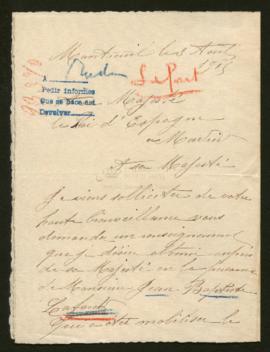 Montreuil le 8 Aout
1915
A
Pedir informes
Que se hace del
Devolver
Le Port
Sa Majesté
le Roi d'Espagne
a Madrid
A sa Majesté
Je viens solliciter de votre
haute bienveillance vous
demander un renseignement
que je désire obtenir auprès
de sa Majesté en la personne
de Monsieur Jean Baptiste
Lafont
Qui a été mobilisé le